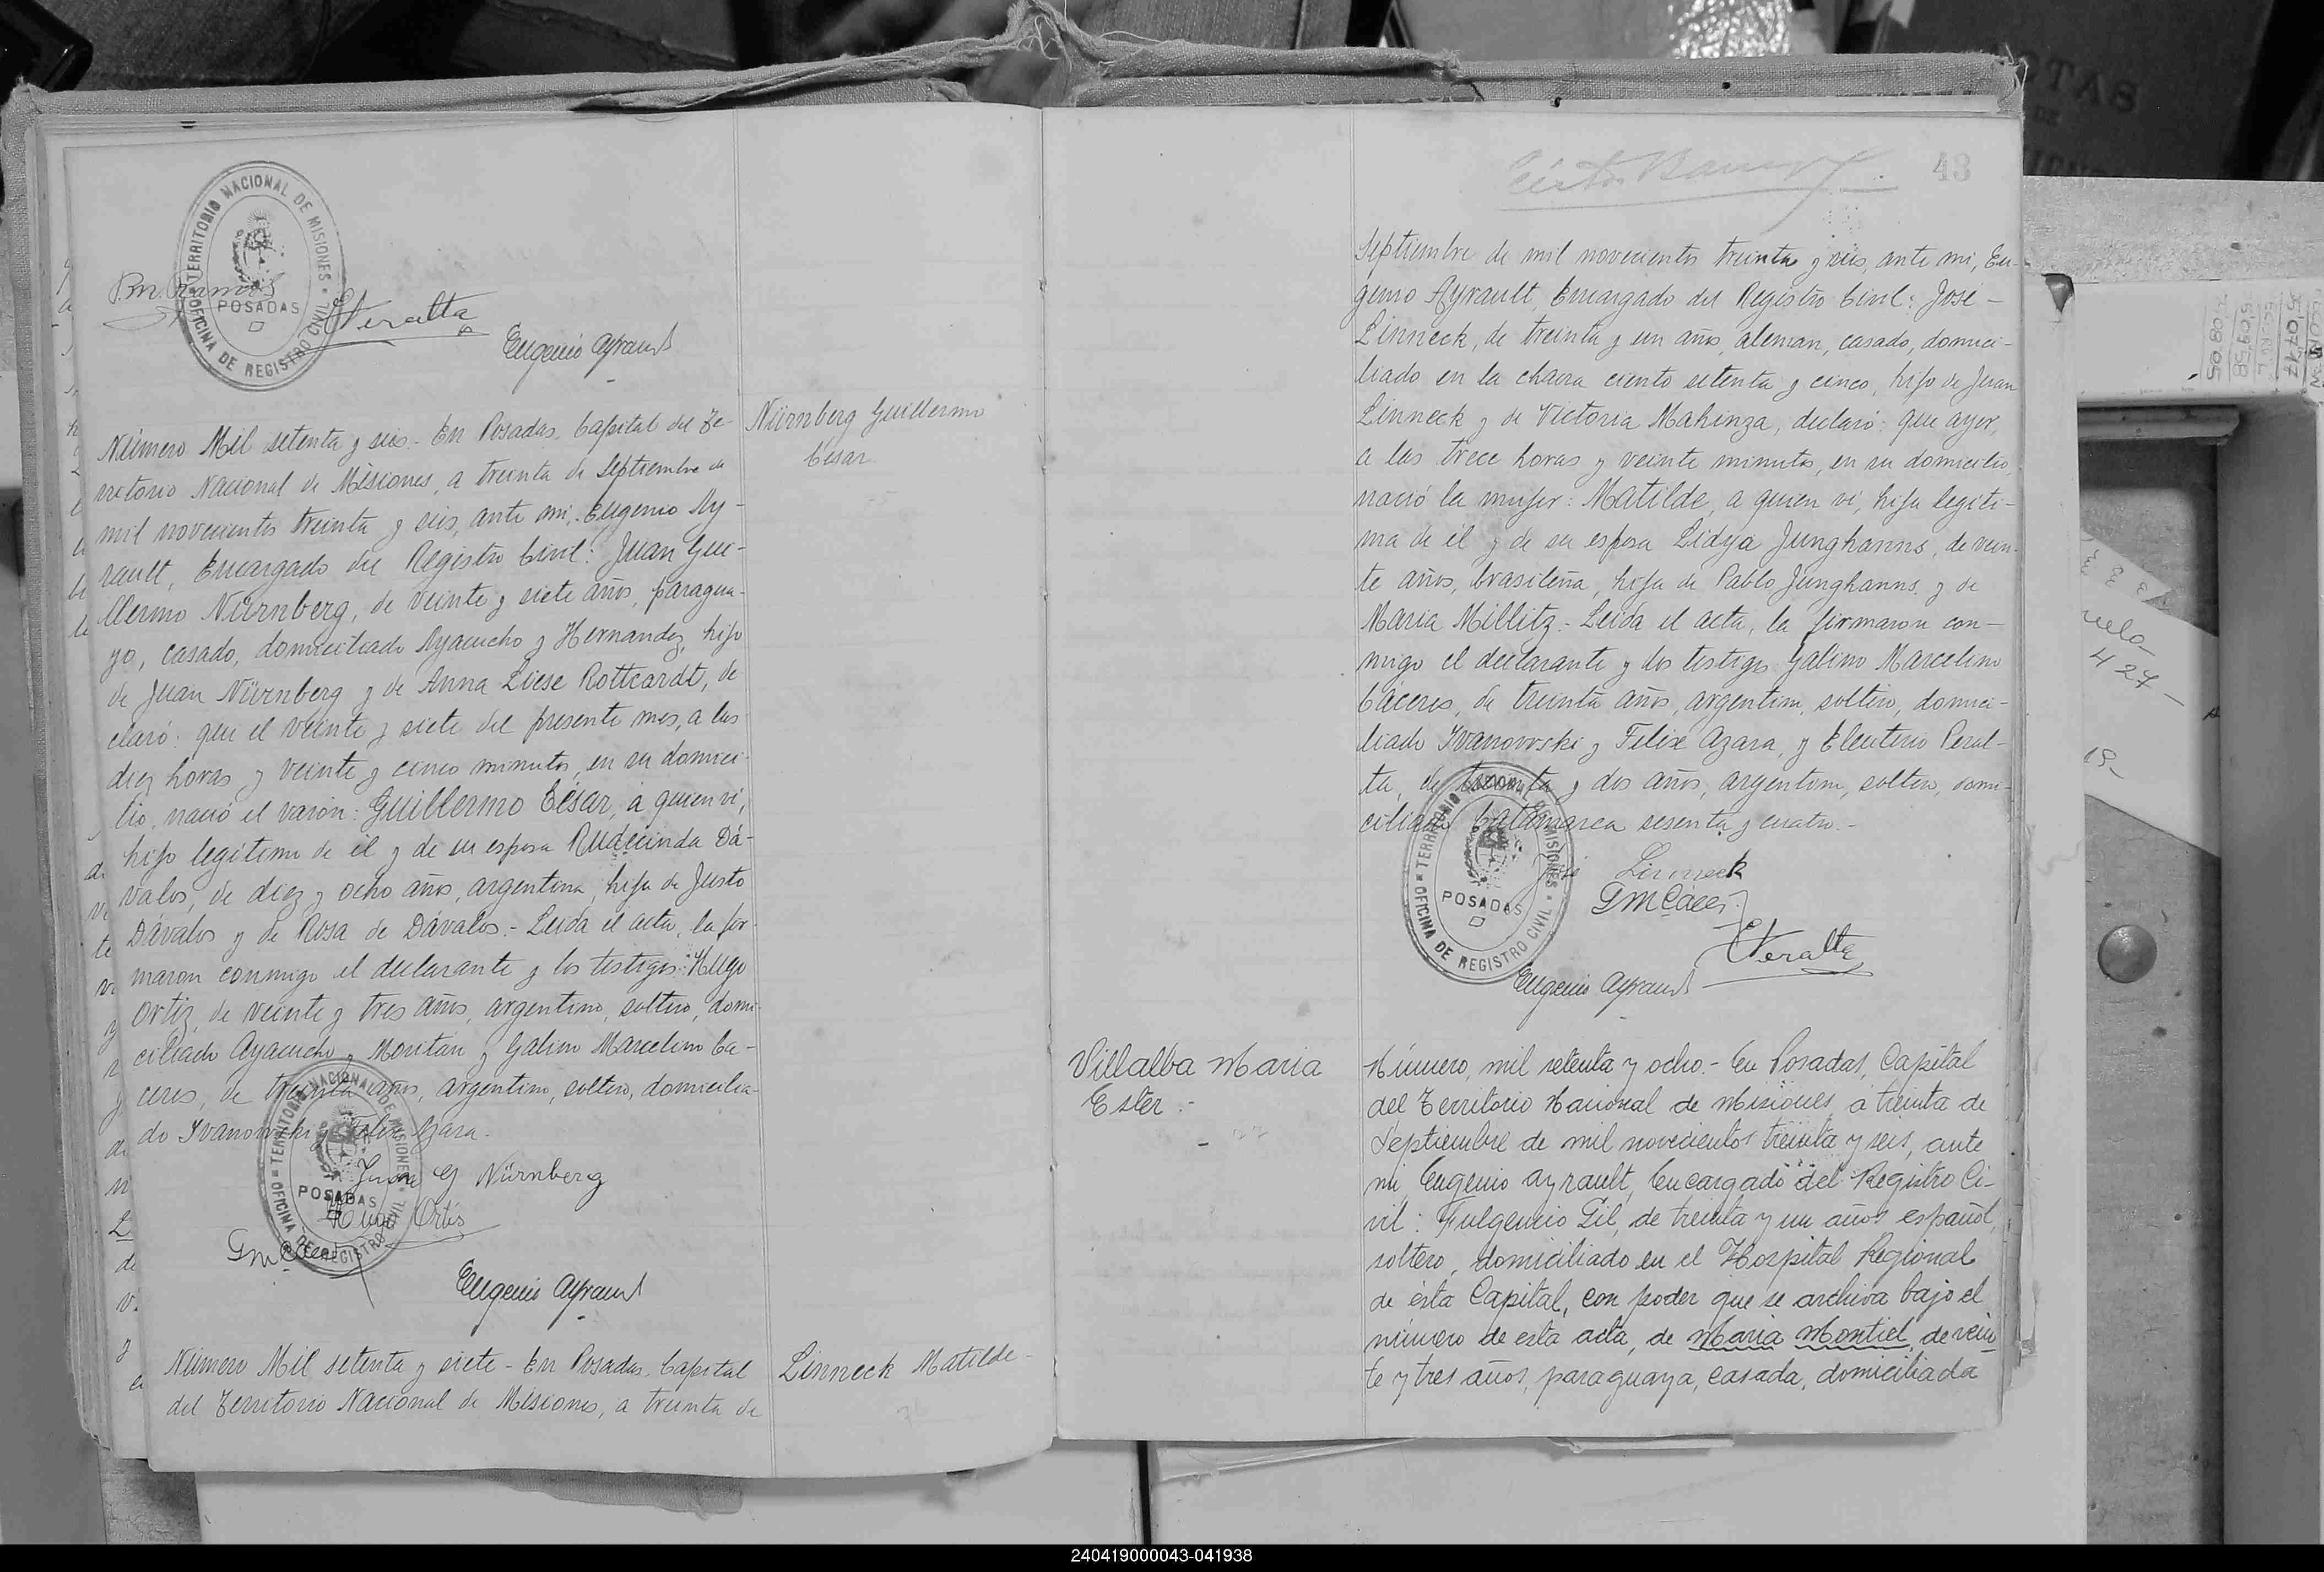 TERRITORIO NACIONAL DE MISIONES
OFICINA DE REGISTRO CIVIL
POSADAS
P.M. Ramos
EPeralta
Eugenio Ayrault
Nürnberg Guillermo
César
Número Mil setenta y seis.- En Posadas, Capital del Te-
rritorio Nacional de Misiones, a treinta de Septiembre de
mil novecientos treinta y seis, ante mi, Eugenio Ay-
rault, Encargado del Registro Civil: Juan Gui-
llermo Nürnberg, de veinte y siete años, paragua-
yo, casado, domiciliado Ayacucho y Hernandez, hijo
de Juan Nürnberg y de Anna Liese Rottcardt, de
claró: que el veinte y siete del presente mes, a las
diez horas y veinte y cinco minutos, en su domici-
lio, nació el varón: Guillermo César, a quien vi,
hijo legitimo de él y de su esposa Rudecinda Dá-
valos, de diez y ocho años, argentina, hija de Justo
Dávalos y de Rosa de Dávalos.- Leida el acta, la fir-
maron conmigo el declarante y los testigos: Hugo
Ortiz, de veinte y tres años, argentino, soltero, domi-
ciliado Ayacucho y Moritán y Galino Marcelino Cá-
ceres, de treinta años, argentino, soltero, domicilia-
do Ivanowski y Felix Azara.
TERRITORIO NACIONAL DE MISIONES
OFICINA DE REGISTRO CIVIL
POSADAS
Juan G Nürnberg
Hugo Ortis
GMCáceres
Eugenio Ayrault
Número Mil setenta y siete - En Posadas, Capital
del Territorio Nacional de Misiones, a treinta de
Linneck Matilde-
43
Septiembre de mil novecientos treinta y seis, ante mi, Eu-
genio Ayrault, Encargado del Registro Civil: José -
Linneck, de treinta y un año, aleman, casado, domici-
liado en la chacra ciento setenta y cinco, hijo de Juan
Linneck y de Victoria Mahinza, declaró: que ayer,
a las trece horas y veinte minutos, en su domicilio,
nació la mujer: Matilde, a quien vi, hija legiti-
ma de él y de su esposa Lidya Junghanns, de vein-
te años, brasileña, hija de Pablo Junghanns, y de
Maria Millitz.- Leida el acta, la firmaron con-
migo el declarante y los testigos Galino Marcelino
Cáceres, de treinta años, argentino, soltero, domici-
liado Ivanowski y Felix Azara, y Eleuterio Peral-
ta, de treinta y dos años, argentino, soltero, domi-
ciliado Catamarca sesenta y cuatro.-
TERRITORIO NACIONAL DE MISIONES
OFICINA DE REGISTRO CIVIL
POSADAS
José Linneck
GMCáceres
EPeralta
Eugenio Ayrault
Villalba Maria
Ester.-
Número, mil setenta y ocho.- En Posadas, Capital
del Territorio Nacional de Misiones, a treinta de
Septiembre de mil novecientos treinta y seis, ante
mi, Eugenio Ayrault, Encargado del Registro Ci-
vil: Fulgencio Gil, de treinta y un años español,
soltero, domiciliado en el Hospital Regional
de ésta Capital, con poder que se archiva bajo el
número de esta acta, de Maria Montiel, de vein
te y tres años, paraguaya, casada, domiciliada
427-
240419000043-041938